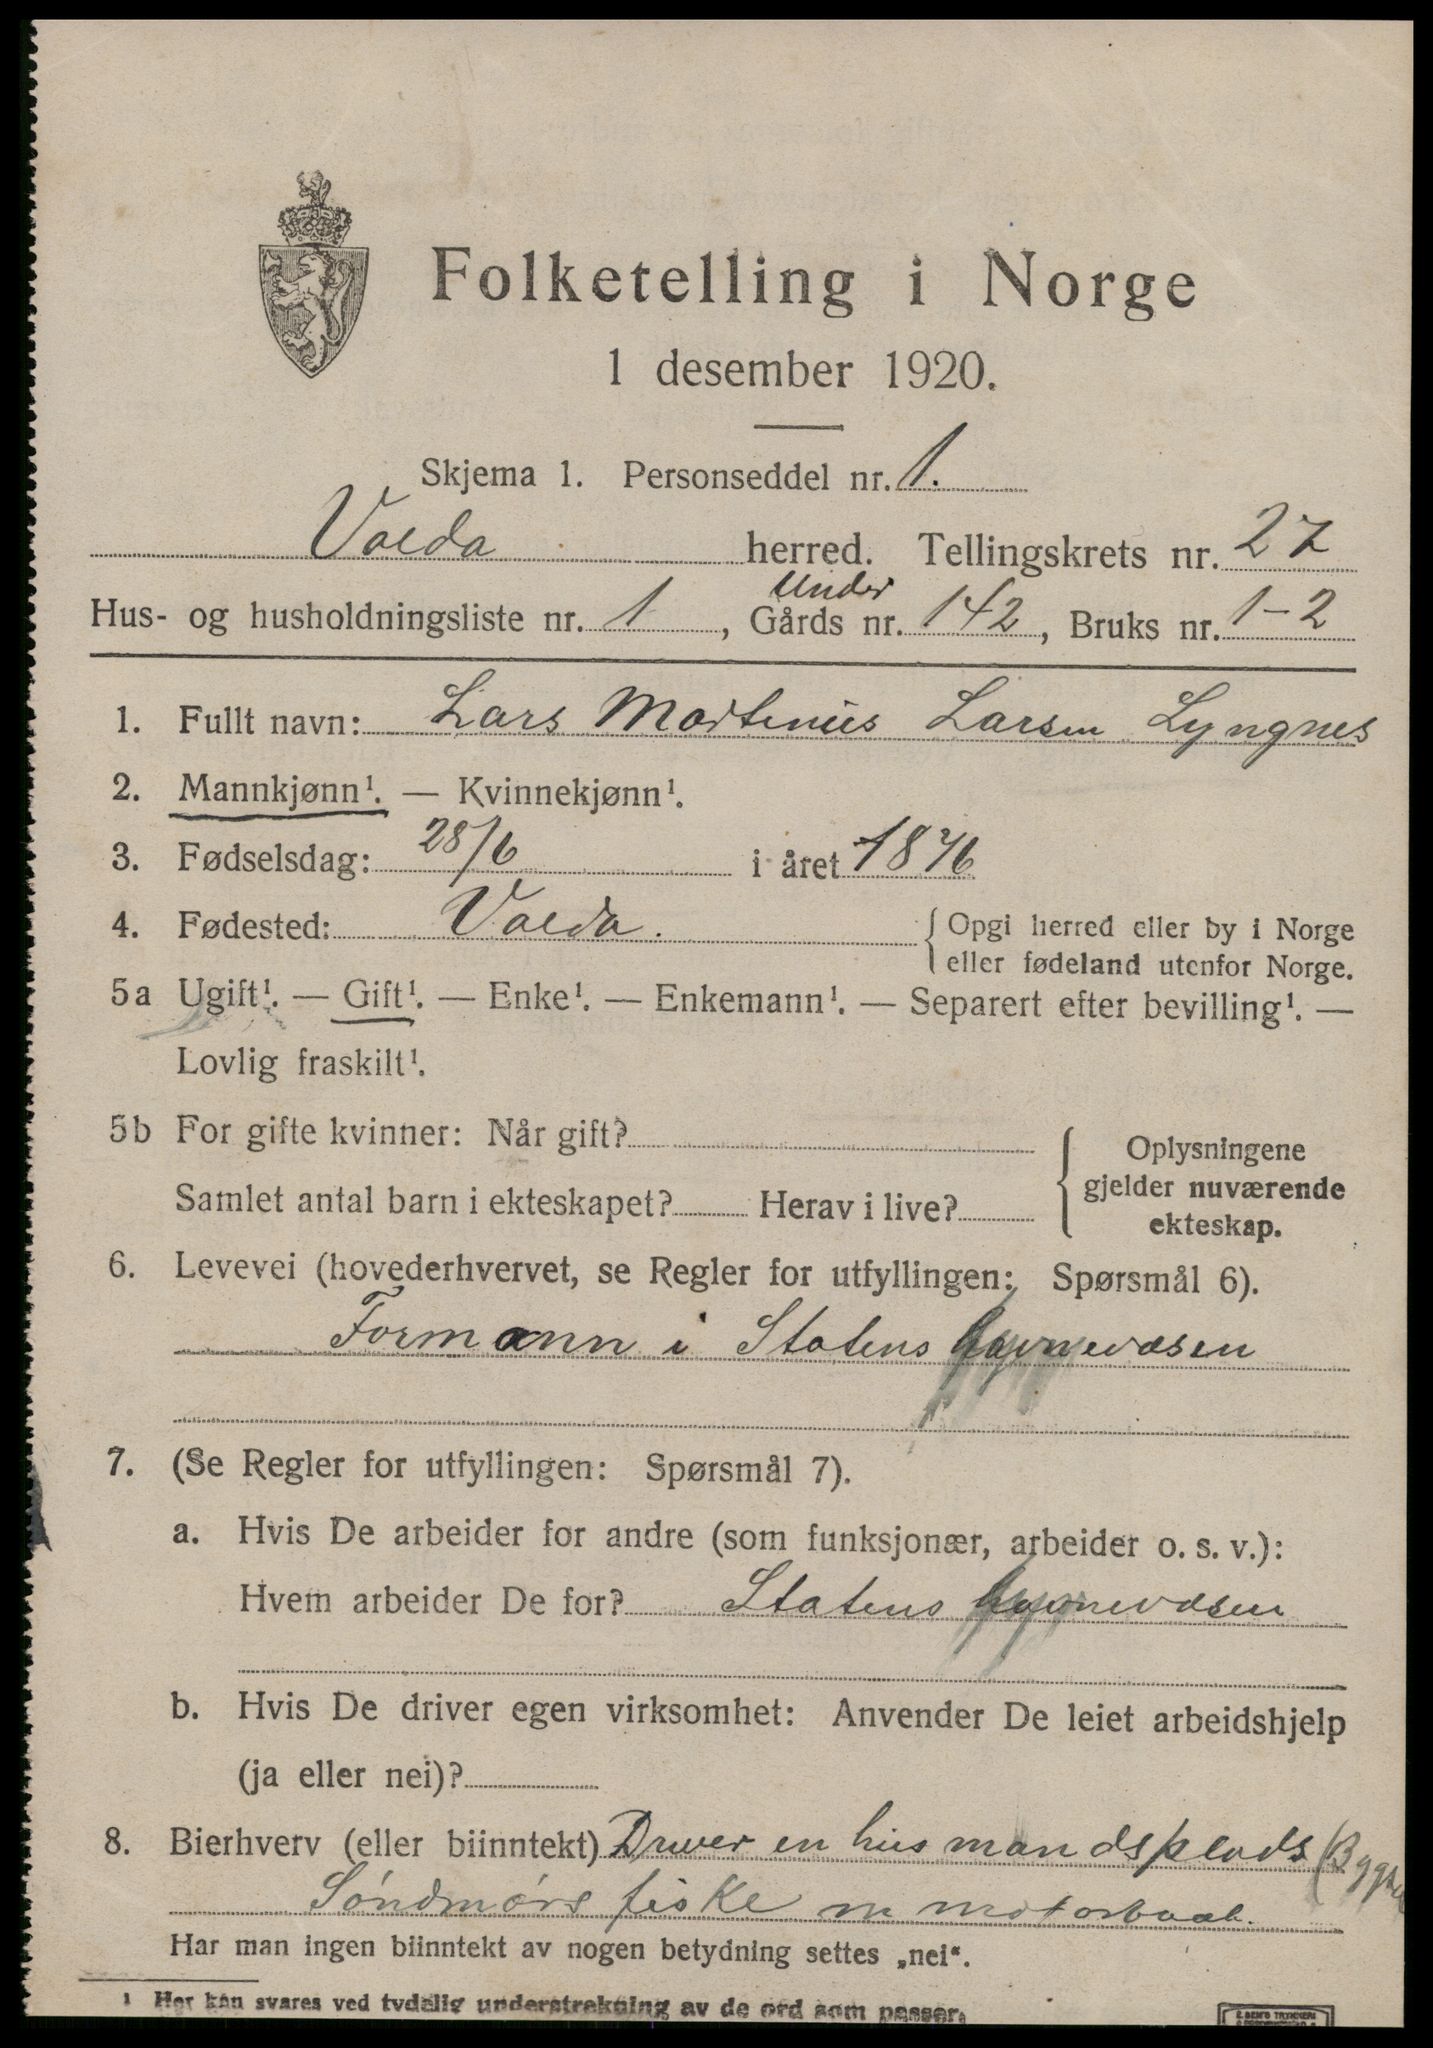 Folketelling i Norge
1 desember 1920.
Skjema 1. Personseddel nr. 1.
Volda herred. Tellingskrets nr. 27
Under
Hus- og husholdningsliste nr. 1, Gårds nr. 142, Bruks nr. 1-2
1. Fullt navn: Lars Martinus Larsen Lyngnes
2. Mannkjønn¹. — Kvinnekjønn¹.
3. Fødselsdag: 28/6 i året 1876
4. Fødested: Volda. { Opgi herred eller by i Norge
eller fødeland utenfor Norge.
5a Ugift¹. — Gift¹. — Enke¹. — Enkemann¹. — Separert efter bevilling¹. —
Lovlig fraskilt¹.
5b For gifte kvinner: Når gift?
Samlet antal barn i ekteskapet? Herav i live?
{ Oplysningene
gjelder nuværende
ekteskap.
6. Levevei (hovederhvervet, se Regler for utfyllingen: Spørsmål 6).
Formann i Statens havnevæsen
7. (Se Regler for utfyllingen: Spørsmål 7).
a. Hvis De arbeider for andre (som funksjonær, arbeider o. s. v.):
Hvem arbeider De for? Statens havnevæsen
b. Hvis De driver egen virksomhet: Anvender De leiet arbeidshjelp
(ja eller nei)?
8. Bierhverv (eller biinntekt) Driver en husmandsplads
Søndmørs fiske m motorbaat.
Har man ingen biinntekt av nogen betydning settes „nei“.
¹ Her kan svares ved tydelig understrekning av de ord som passer.